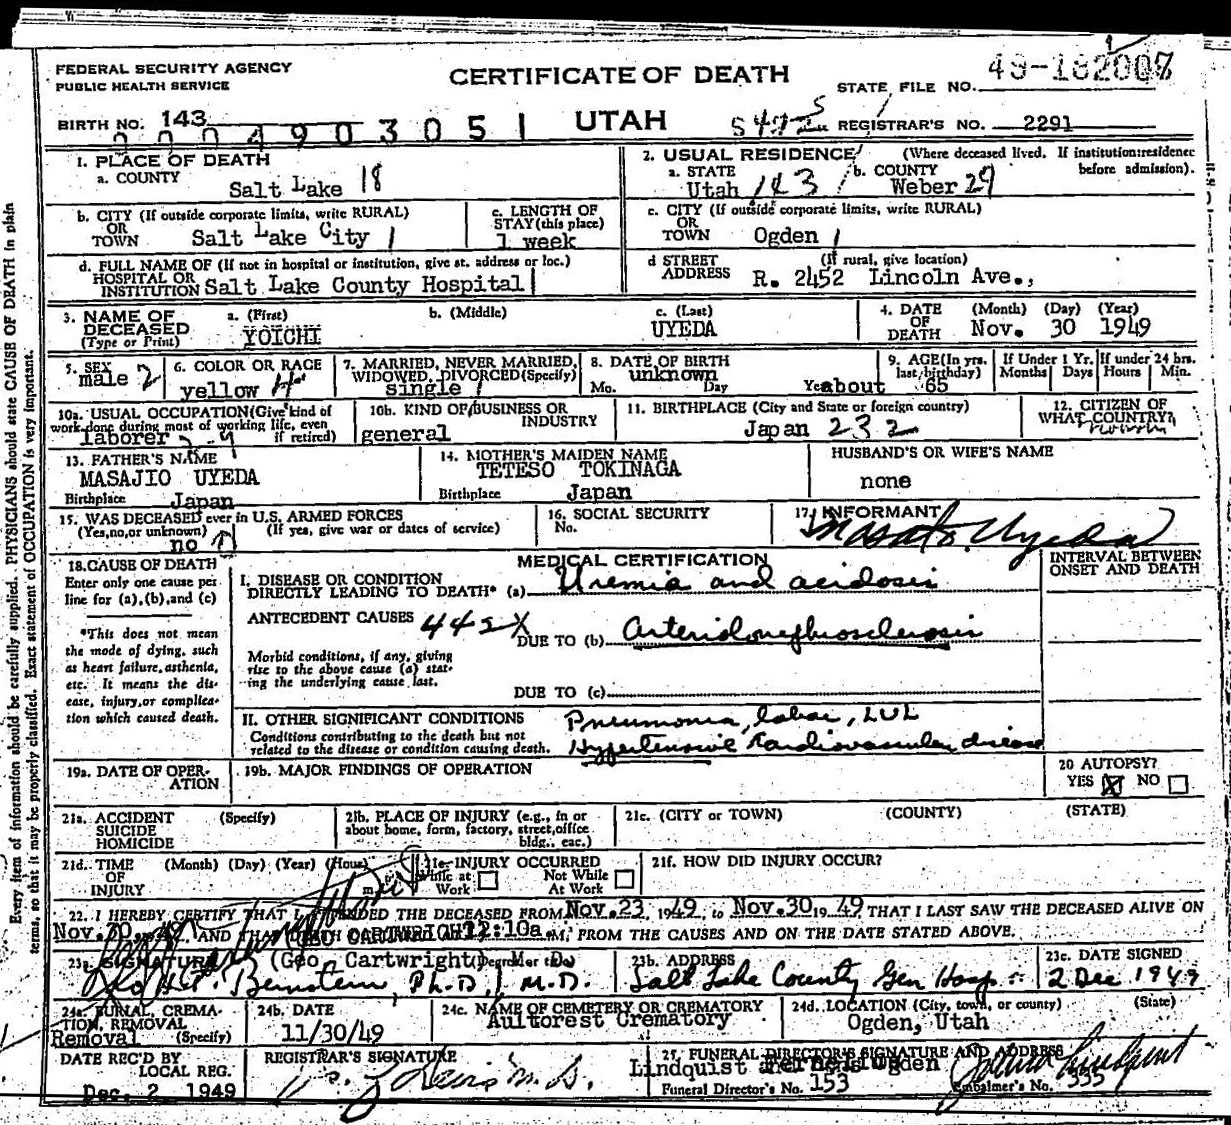 FEDERAL SECURITY AGENCY
PUBLIC HEALTH SERVICE
CERTIFICATE OF DEATH
STATE FILE NO.
BIRTH NO. 143
UTAH
REGISTRAR'S NO. 2291
1. PLACE OF DEATH
a. COUNTY
Salt Lake 18
2. USUAL RESIDENCE (Where deceased lived. If institution:residence before admission).
a. STATE
Utah 143
b. COUNTY
Weber 29
b. CITY (If outside corporate limits, write RURAL)
OR
TOWN Salt Lake City 1
c. LENGTH OF
STAY (this place)
1 week
c. CITY (If outside corporate limits, write RURAL)
OR
TOWN Ogden 1
d. FULL NAME OF (If not in hospital or institution, give st. address or loc.)
HOSPITAL OR
INSTITUTION Salt Lake County Hospital
d STREET (If rural, give location)
ADDRESS R. 2452 Lincoln Ave.,
3. NAME OF
DECEASED
(Type or Print)
a. (First)
YOICHI
b. (Middle)
c. (Last)
UYEDA
4. DATE OF DEATH
(Month) (Day) (Year)
Nov. 30 1949
5. SEX
male 2
6. COLOR OR RACE
yellow 4
7. MARRIED, NEVER MARRIED,
WIDOWED, DIVORCED (Specify)
single 1
8. DATE OF BIRTH
unknown
Mo. Day Year
9. AGE (In yrs. last birthday)
about 65
If Under 1 Yr.
Months Days
If under 24 hrs.
Hours Min.
10a. USUAL OCCUPATION (Give kind of
work done during most of working life, even
if retired)
laborer
10b. KIND OF BUSINESS OR
INDUSTRY
general
11. BIRTHPLACE (City and State or foreign country)
Japan 232
12. CITIZEN OF
WHAT COUNTRY?
13. FATHER'S NAME
MASAJIO UYEDA
Birthplace Japan
14. MOTHER'S MAIDEN NAME
TETESO TOKINAGA
Birthplace Japan
HUSBAND'S OR WIFE'S NAME
none
15. WAS DECEASED ever in U.S. ARMED FORCES
(Yes, no, or unknown) (If yes, give war or dates of service)
no
16. SOCIAL SECURITY
No.
17. INFORMANT
Masato Uyeda
18. CAUSE OF DEATH
Enter only one cause per
line for (a), (b), and (c)
*This does not mean
the mode of dying, such
as heart failure, asthenia,
etc. It means the dis-
ease, injury, or complica-
tion which caused death.
MEDICAL CERTIFICATION
INTERVAL BETWEEN
ONSET AND DEATH
I. DISEASE OR CONDITION
DIRECTLY LEADING TO DEATH* (a) Uremia and acidosis
ANTECEDENT CAUSES 442X
DUE TO (b) Arteriolonephrosclerosis
Morbid conditions, if any, giving
rise to the above cause (a) stat-
ing the underlying cause last.
DUE TO (c)
II. OTHER SIGNIFICANT CONDITIONS
Conditions contributing to the death but not
related to the disease or condition causing death.
Pneumonia, lobar, LUL
Hypertensive Cardiovascular disease
19a. DATE OF OPER-
ATION
19b. MAJOR FINDINGS OF OPERATION
20 AUTOPSY?
YES NO
21a. ACCIDENT (Specify)
SUICIDE
HOMICIDE
21b. PLACE OF INJURY (e.g., in or
about home, form, factory, street, office
bldg., eac.)
21c. (CITY or TOWN) (COUNTY) (STATE)
21d. TIME (Month) (Day) (Year) (Hour)
OF
INJURY
21e. INJURY OCCURRED
While at Work
Not While At Work
21f. HOW DID INJURY OCCUR?
22. I HEREBY CERTIFY THAT I ATTENDED THE DECEASED FROM Nov.23, 1949, to Nov.30 1949 THAT I LAST SAW THE DECEASED ALIVE ON
Nov.30, 1949 AND THAT DEATH OCCURRED AT 12:10a. M, FROM THE CAUSES AND ON THE DATE STATED ABOVE.
GEO CARTWRIGHT
23a. SIGNATURE (Geo Cartwright) (Degree or title) M. D.
Bernstein, Ph.D., M.D.
23b. ADDRESS
Salt Lake County Gen Hosp
23c. DATE SIGNED
2 Dec 1949
24a. BURIAL, CREMA-
TION, REMOVAL
(Specify)
Removal
24b. DATE
11/30/49
24c. NAME OF CEMETERY OR CREMATORY
Aultorest Crematory
24d. LOCATION (City, town, or county) (State)
Ogden, Utah
DATE REC'D BY
LOCAL REG.
Dec. 2 1949
REGISTRAR'S SIGNATURE
25. FUNERAL DIRECTOR'S SIGNATURE AND ADDRESS
Lindquist Ogden
Funeral Director's No. 153
Embalmer's No. 335
Every item of information should be carefully supplied. PHYSICIANS should state CAUSE OF DEATH in plain
terms, so that it may be properly classified. Exact statement of OCCUPATION is very important.